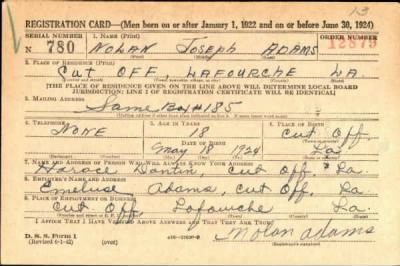 13
REGISTRATION CARD—(Men born on or after January 1, 1922 and on or before June 30, 1924)
SERIAL NUMBER 1. NAME (Print) ORDER NUMBER
N 780 NOLAN JOSEPH ADAMS 12879
2. PLACE OF RESIDENCE (Print)
Cut OFF, LAFOURCHE LA.
[THE PLACE OF RESIDENCE GIVEN ON THE LINE ABOVE WILL DETERMINE LOCAL BOARD
JURISDICTION; LINE 2 OF REGISTRATION CERTIFICATE WILL BE IDENTICAL]
3. MAILING ADDRESS
Same Box#185
4. TELEPHONE 5. AGE IN YEARS 6. PLACE OF BIRTH
None 18 Cut Off,
DATE OF BIRTH
May 18 1924 La.
7. NAME AND ADDRESS OF PERSON WHO WILL ALWAYS KNOW YOUR ADDRESS
Horace Dantin, Cut Off, La.
8. EMPLOYER'S NAME AND ADDRESS
Adams, Cut Off, La.
9. PLACE OF EMPLOYMENT OR BUSINESS
Cut Off, Lafourche La.
I AFFIRM THAT I HAVE VERIFIED ABOVE ANSWERS AND THAT THEY ARE TRUE.
D. S. S. Form 1
(Revised 6-1-42) (over)
Nolan Adams